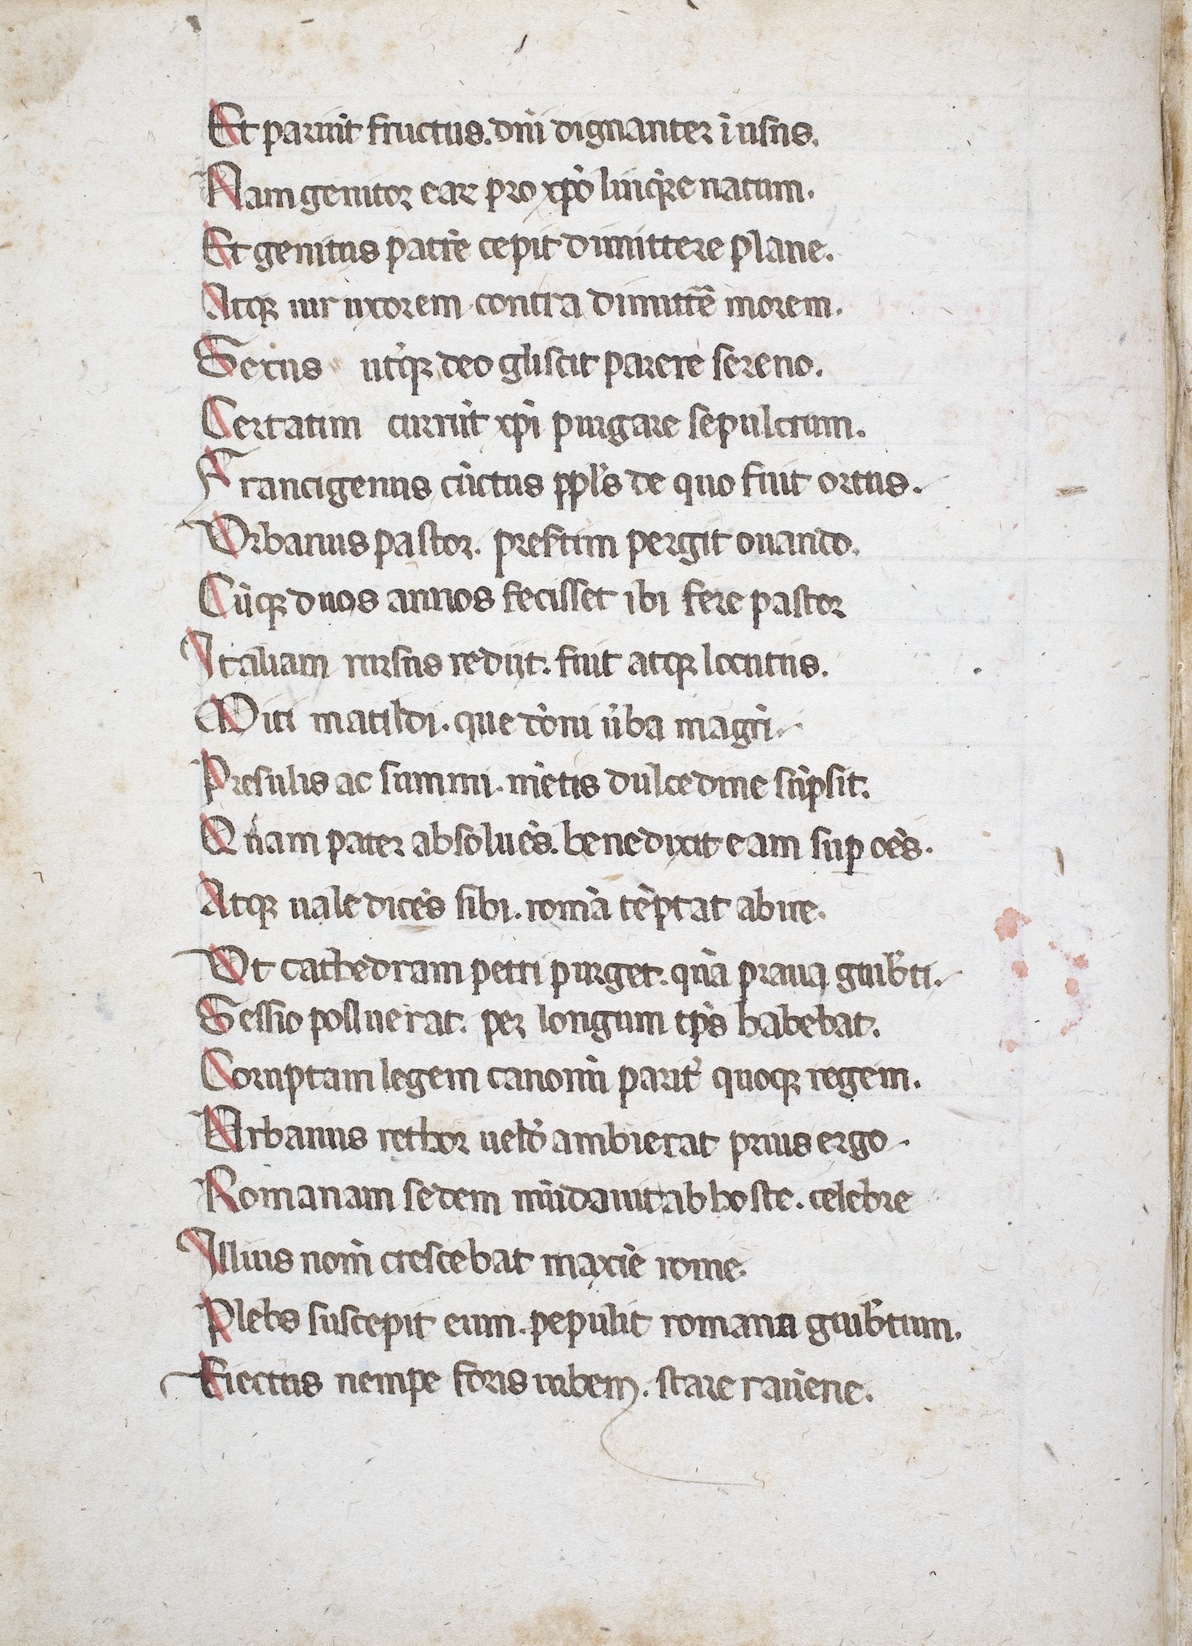 Et pariũt fructus. dñi dignanter ĩ usus.
Nam genitor ear pro xp̃o linq̃re natum.
Et genitus patrẽ cepit dimittere plane.
Atq; uir uxorem contra dimittẽ morem.
Sexus utq̃; deo gliscit parere sereno.
Certatim currũt xp̃i purgare sepulcrum.
Francigenus cũctus ppl̃s de quo fuit ortus.
Vrbanus pastor. prestim pergit ouando.
Cũq; duos annos fecisset ibi fere pastor
Italiam rursus redijt. fuit atq; locutus.
Miti matildi. que dõni ũba magr̃i.
Presulis ac summi. mẽtis dulcedine scripsit.
Quam pater absoluẽs. benedixit eam sup oẽs.
Atq; uale dicẽs sibi. romã tẽptat abire.
Vt cathedram petri purget. quã praua guib̃ti.
Sessio polluerat. per longum tp̃s habebat.
Coruptam legem canonũ parit̃ quoq; regem.
Vrbanus rethor uelõ ambierat prius ergo.
Romanam sedem mũdauit ab hoste. celebre
Illius nom̃ crescebat maxiẽ rome.
Plebs suscepit eum. pepulit romana guib̃tum.
Eiectus nempe foris urbem. stare rauẽne.